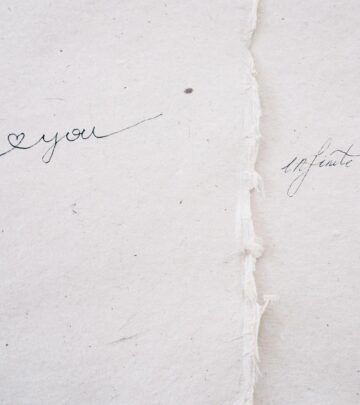 ♡you
infinite